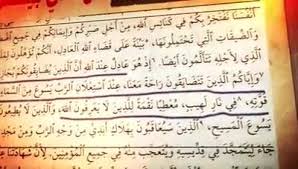 أَنْفُسَنَا نَفْتَخِرُ بِكُمْ فِي كَنَائِسِ اللهِ، مِنْ أَجْلِ صَبْرِكُمْ وَإِيمَانِكُمْ فِي جَمِيعِ
وَالضِّيقَاتِ الَّتِي تَحْتَمِلُونَهَا، بَيِّنَةً عَلَى قَضَاءِ اللهِ الْعَادِلِ، أَنَّكُمْ تُؤَهَّلُونَ
الَّذِي لأَجْلِهِ تَتَأَلَّمُونَ أَيْضًا. إِذْ هُوَ عَادِلٌ عِنْدَ اللهِ أَنَّ الَّذِينَ يُضَايِقُونَكُمْ
وَإِيَّاكُمُ الَّذِينَ تَتَضَايَقُونَ رَاحَةً مَعَنَا، عِنْدَ اسْتِعْلاَنِ الرَّبِّ يَسُوعَ مِنَ السَّمَاءِ
قُوَّتِهِ، فِي نَارِ لَهِيبٍ، مُعْطِيًا نَقْمَةً لِلَّذِينَ لاَ يَعْرِفُونَ اللهَ، وَالَّذِينَ لاَ يُطِيعُونَ
يَسُوعَ الْمَسِيحِ، الَّذِينَ سَيُعَاقَبُونَ بِهَلاَكٍ أَبَدِيٍّ مِنْ وَجْهِ الرَّبِّ وَمِنْ مَجْدِ
جَاءَ لِيَتَمَجَّدَ فِي قِدِّيسِيهِ وَيُتَعَجَّبَ مِنْهُ فِي جَمِيعِ الْمُؤْمِنِينَ. لأَنَّ شَهَادَتَنَا